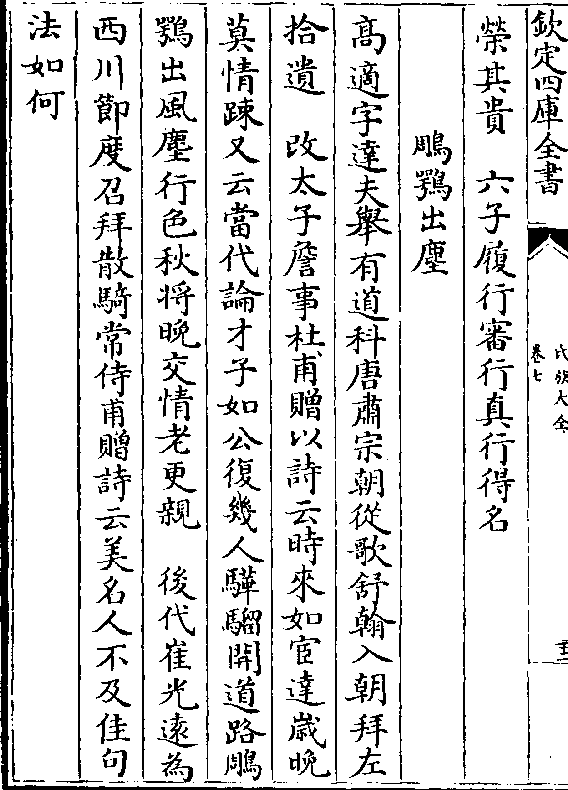 欽定四庫全書
氏族大全
卷七
榮其貴　六子履行審行真行得名
鵰鶚出塵
高適字達夫舉有道科唐肅宗朝從歌舒翰入朝拜左
拾遺　改太子詹事杜甫贈以詩云時來如宦達歲晚
莫情踈又云當代論才子如公復幾人驊騮開道路鵰
鶚出風塵行色秋將晚交情老更親　後代崔光遠為
西川節度召拜散騎常侍甫贈詩云美名人不及佳句
法如何